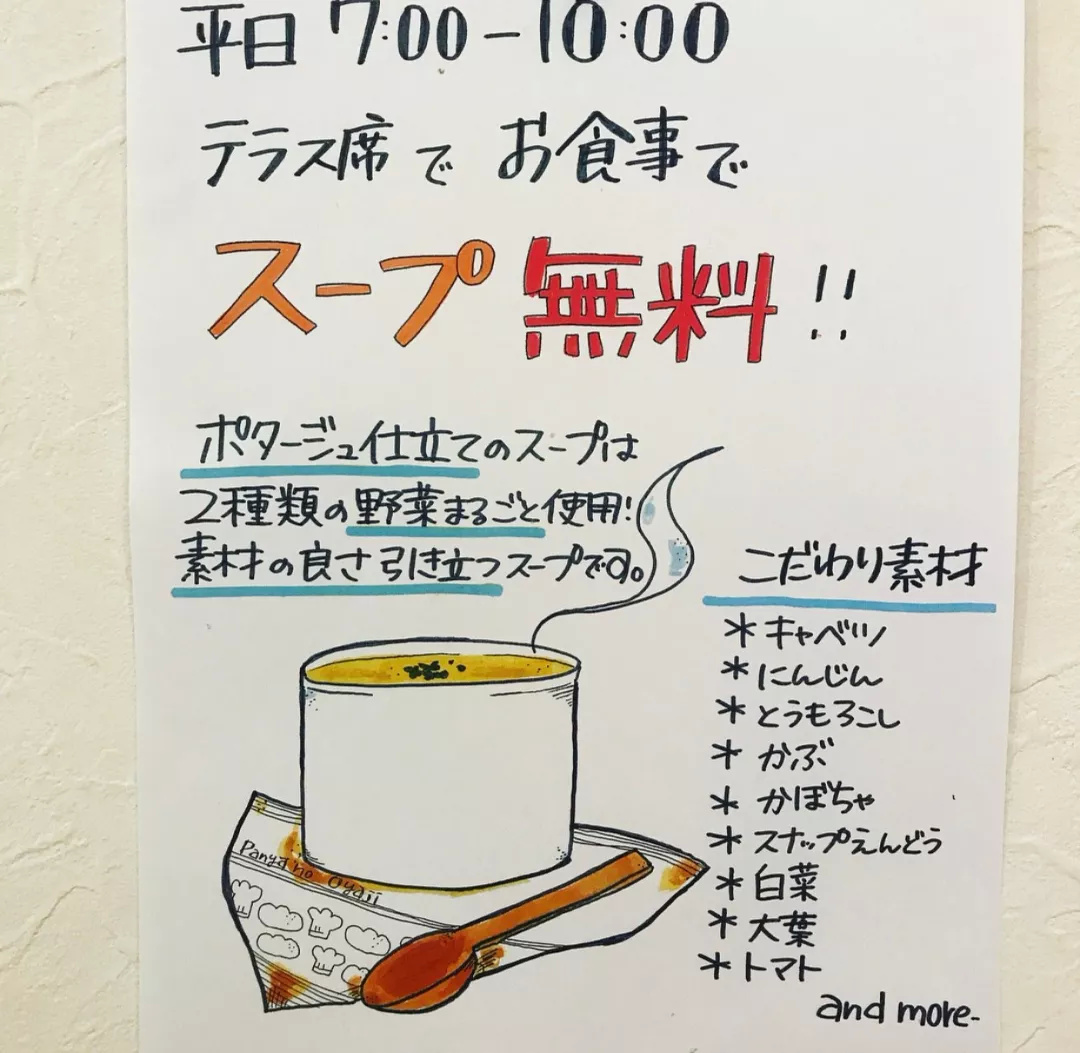 平日 7:00-10:00
テラス席で お食事で
スープ 無料!!
ポタージュ仕立てのスープは
2種類の野菜まるごと使用!
素材の良さ引き立つスープです。
こだわり素材
＊キャベツ
＊にんじん
＊とうもろこし
＊かぶ
＊かぼちゃ
＊スナップえんどう
＊白菜
＊大葉
＊トマト
and more-
Panya no Oyaji